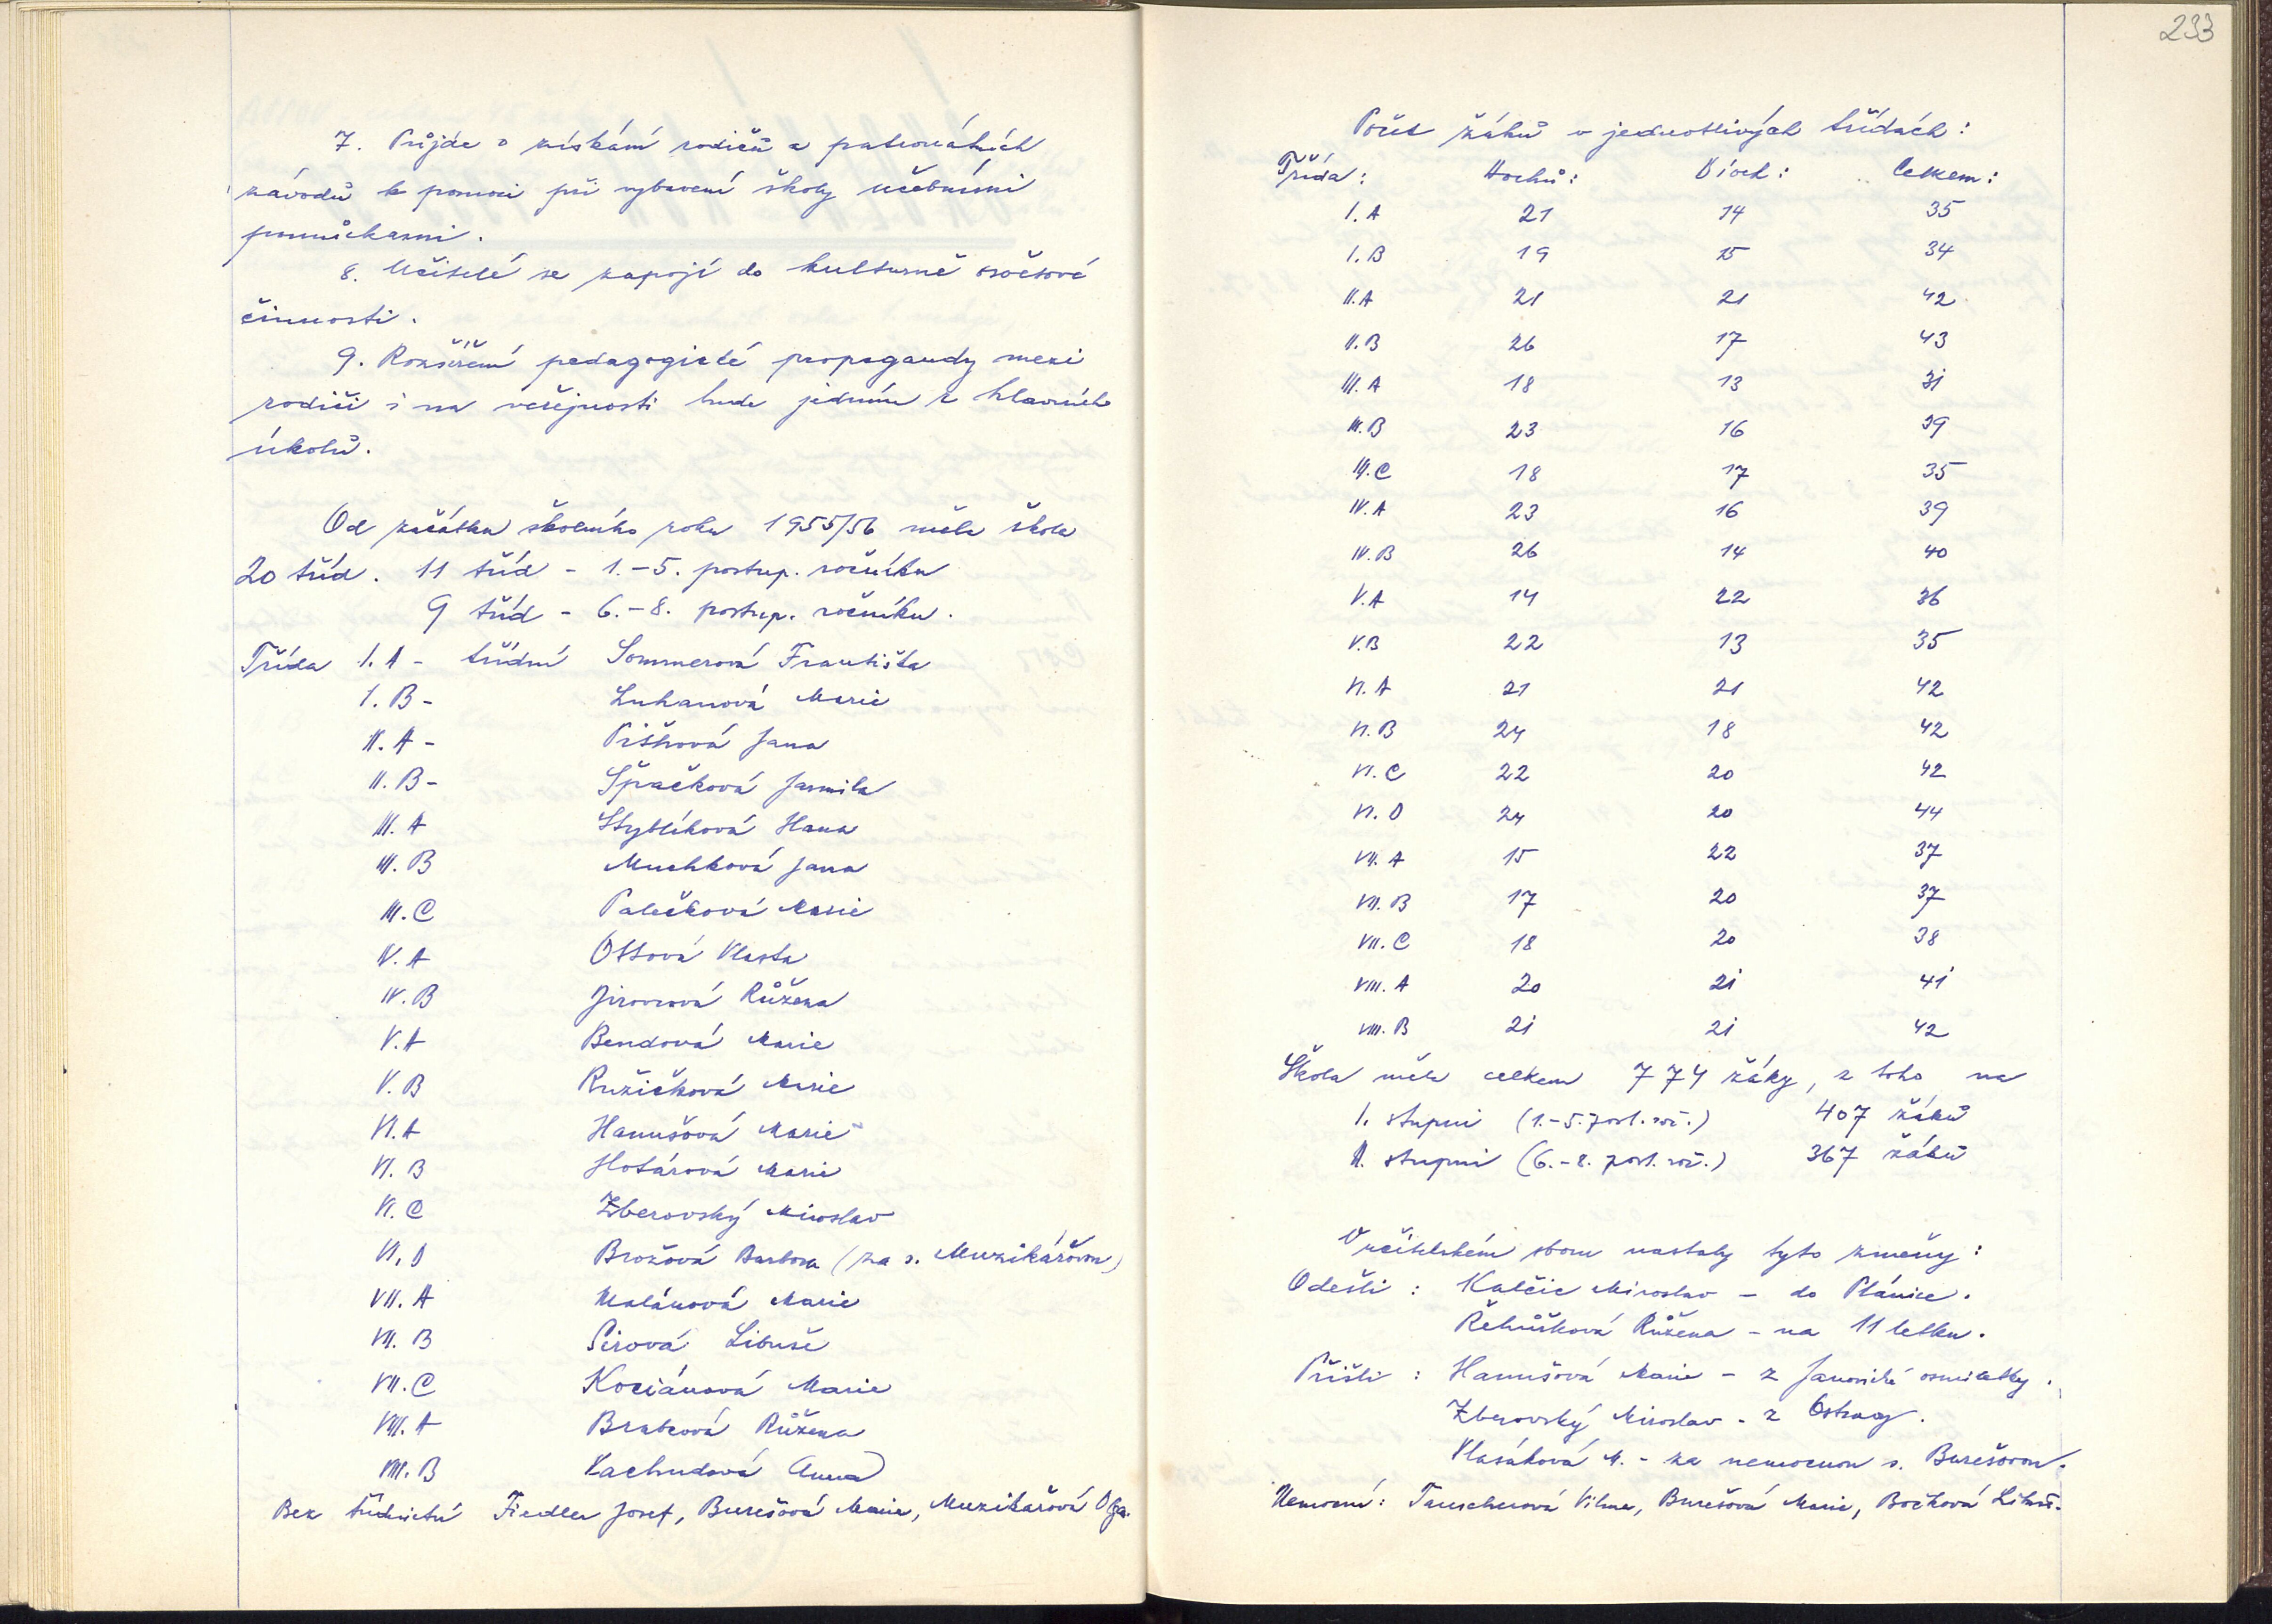 7. Půjde o získání rodičů a patronátních
závodů k pomoci při vybavení školy učebními
pomůckami.
8. Učitelé se zapojí do kulturně osvětové
činnosti.
9. Rozšíření pedagogické propagandy mezi
rodiči i na veřejnosti bude jedním z hlavních
úkolů.
Od začátku školního roku 1955/56 měla škola
20 tříd. 11 tříd - 1.-5. postup. ročníku
9 tříd - 6.-8. postup. ročníku.
Třída I. A - třídní Sommerová Františka
I. B - Luhanová Marie
II. A - Pišlová Jana
II. B - Špačková Jarmila
III. A Styblíková Hana
III. B Muchková Jana
III. C Palečková Marie
IV. A Ottová Vlasta
IV. B Jirovcová Růžena
V. A Bendová Marie
V. B Ružičková Marie
VI. A Hanušová Marie
VI. B Hotárová Marie
VI. C Zberovský Miroslav
VI. D Brožová Barbora (za s. Muzikářovou)
VII. A Malánová Marie
VII. B Pirová Libuše
VII. C Kociánová Marie
VIII. A Brabcová Růžena
VIII. B Lachudová Anna
Bez třídnictví Fiedler Josef, Burešová Marie, Muzikářová Olga.
233
Počet žáků v jednotlivých třídách:
Třída: Hochů: Dívek: Celkem:
I. A 21 14 35
I. B 19 15 34
II. A 21 21 42
II. B 26 17 43
III. A 18 13 31
III. B 23 16 39
III. C 18 17 35
IV. A 23 16 39
IV. B 26 14 40
V. A 14 22 36
V. B 22 13 35
VI. A 21 21 42
VI. B 24 18 42
VI. C 22 20 42
VI. D 24 20 44
VII. A 15 22 37
VII. B 17 20 37
VII. C 18 20 38
VIII. A 20 21 41
VIII. B 21 21 42
Škola měla celkem 774 žáky, z toho na
I. stupni (1.-5. post. roč.) 407 žáků
II. stupni (6.-8. post. roč.) 367 žáků
V učitelském sboru nastaly tyto změny:
Odešli: Kalčic Miroslav - do Plánice.
Řehůřková Růžena - na 11 letku.
Přišli: Hanušová Marie - z Janovické osmiletky.
Zberovský Miroslav - z Ostravy.
Vlasáková M. - za nemocnou s. Burešovou.
Nemocní: Tauscherová Vilma, Burešová Marie, Bočková Libuš.